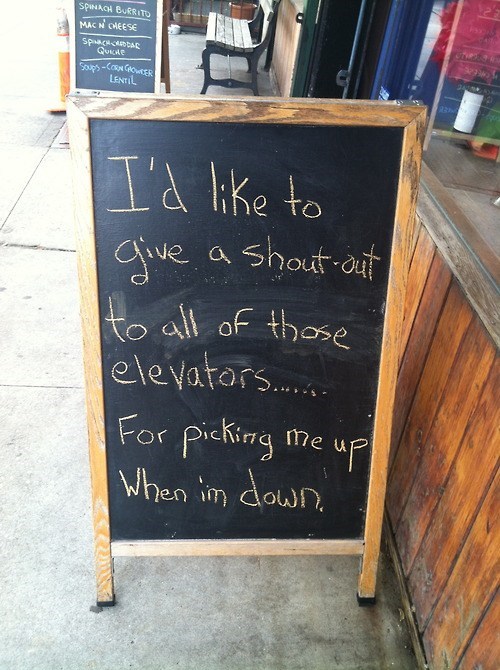 SPINACH BURRITO
MAC N' CHEESE
SPINACH-CHEDDAR
QUICHE
SOUPS - CORN CHOWDER
LENTIL
I'd like to
give a shout-out
to all of those
elevators......
For picking me up
When im down.